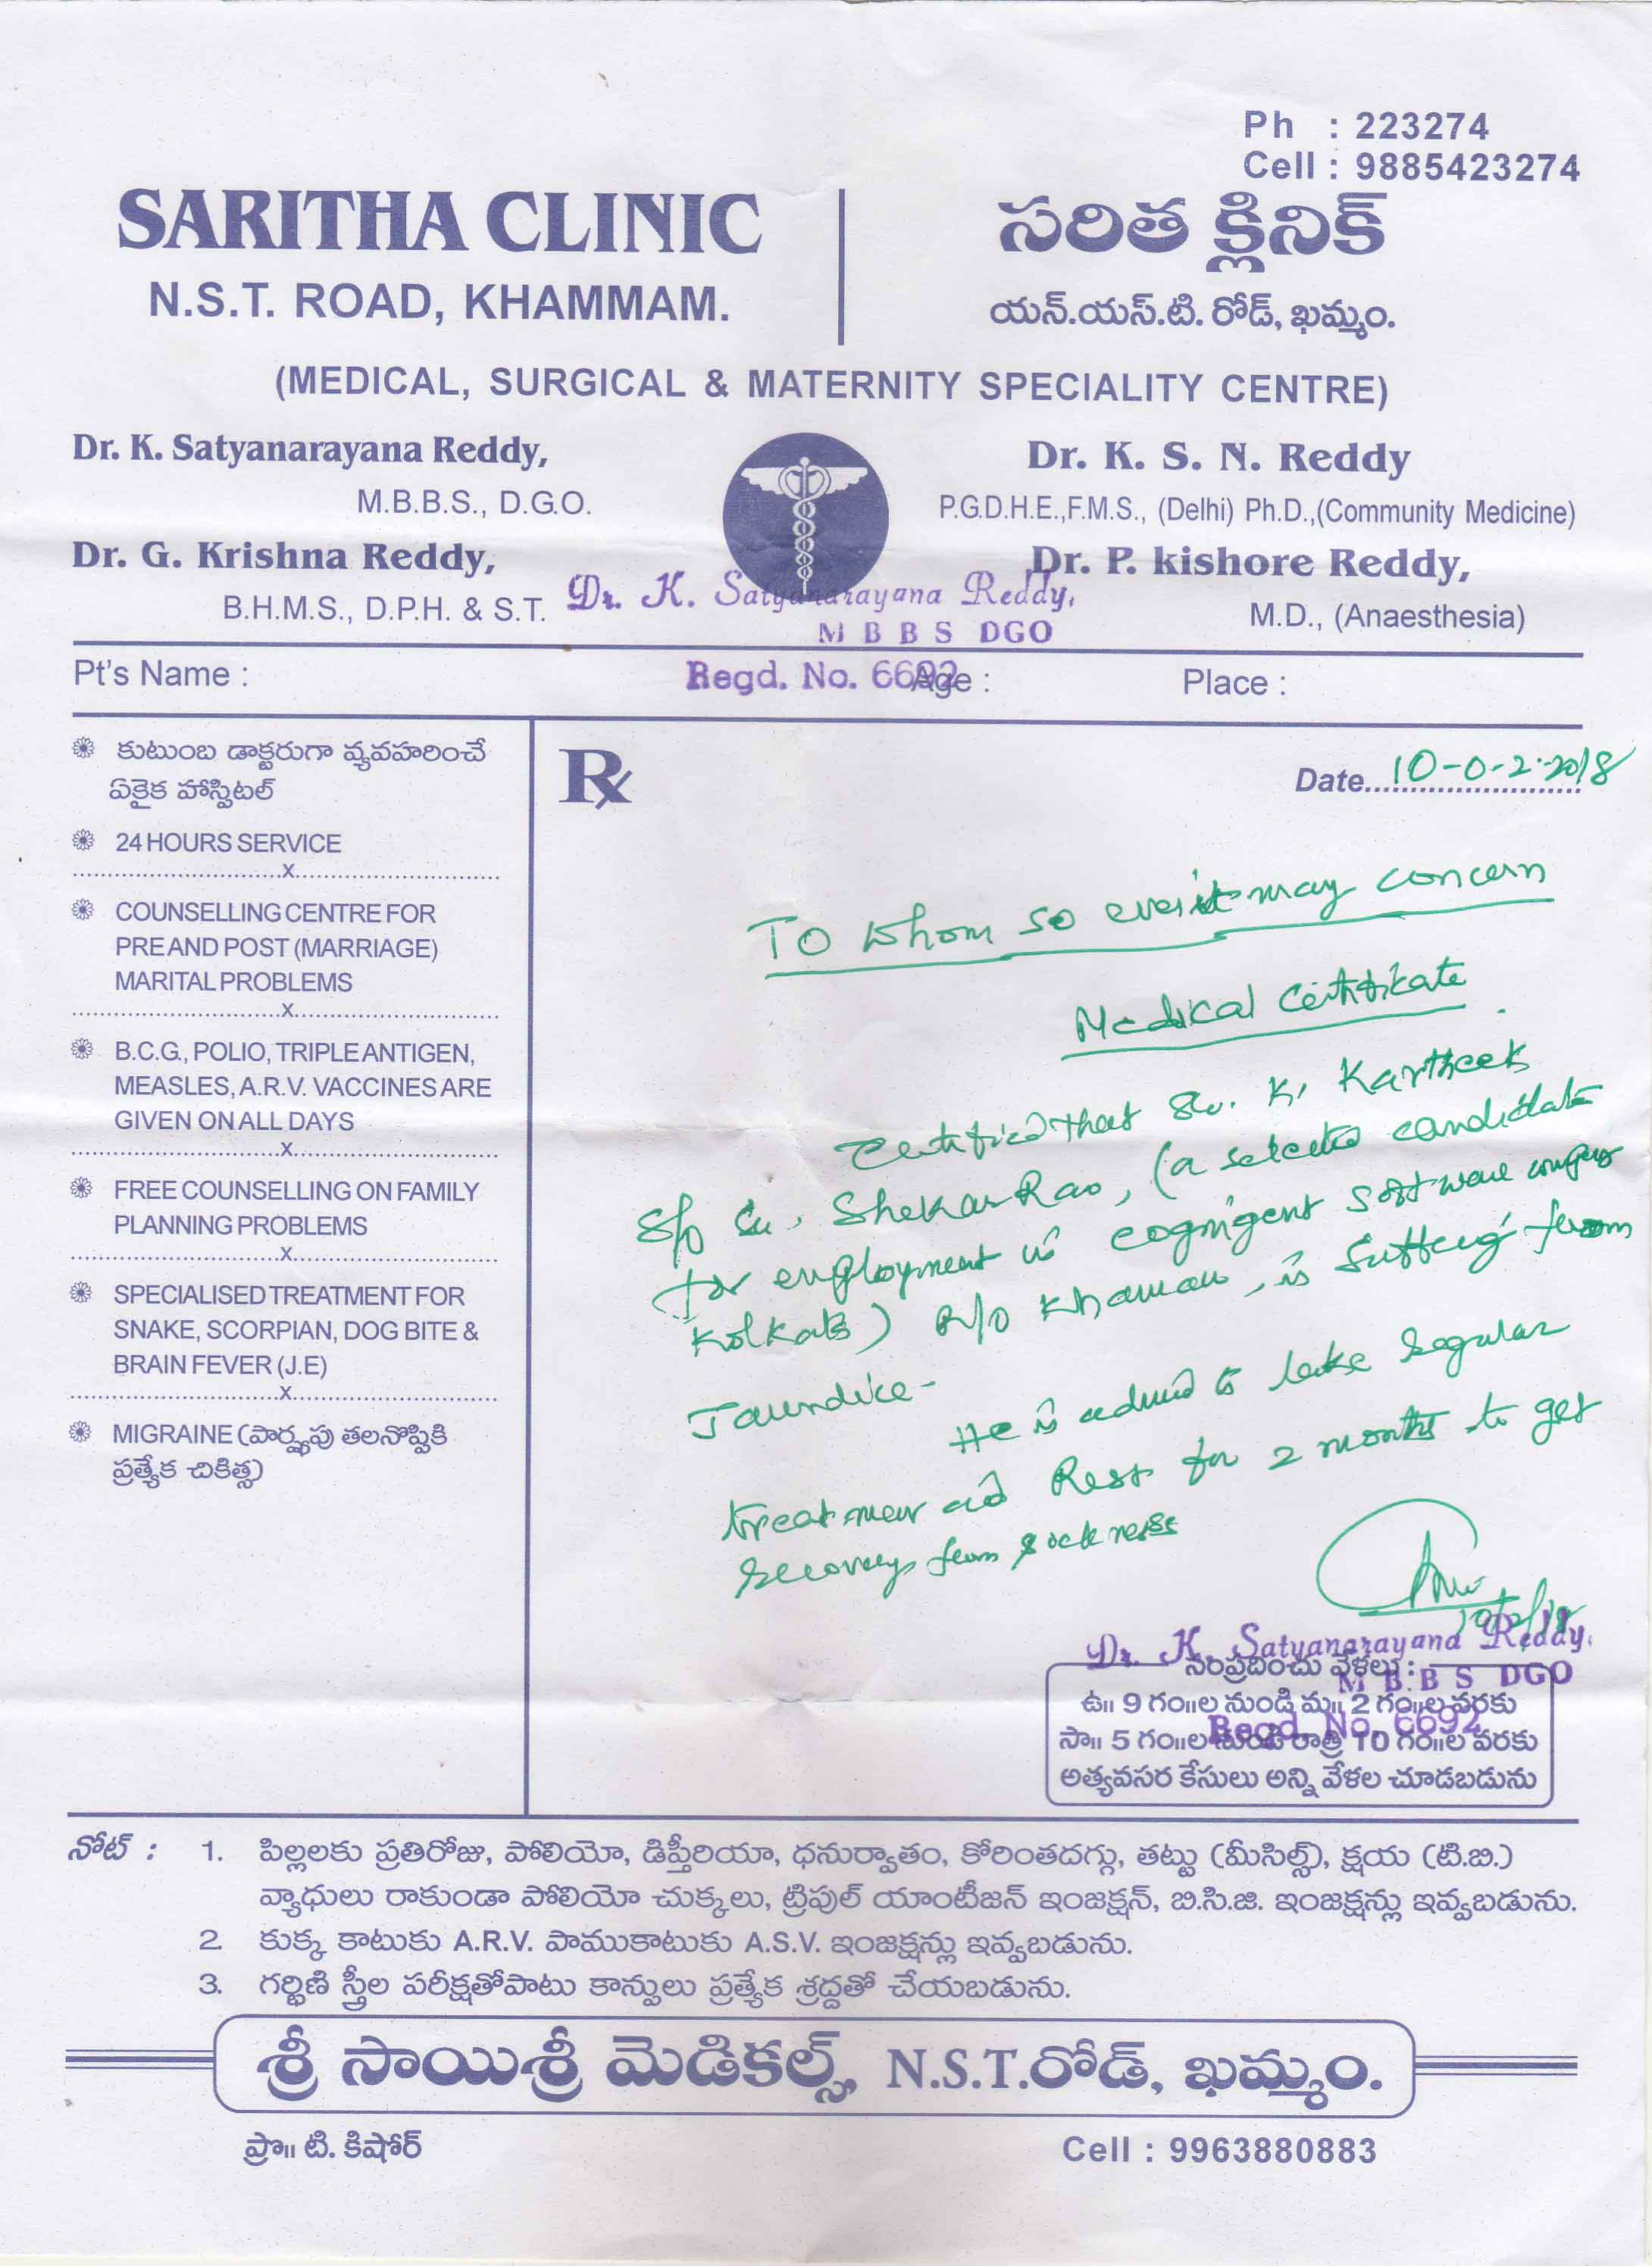 Ph : 223274
Cell : 9885423274
SARITHA CLINIC
N.S.T. ROAD, KHAMMAM.
సరిత క్లినిక్
యన్.యస్.టి. రోడ్, ఖమ్మం.
(MEDICAL, SURGICAL & MATERNITY SPECIALITY CENTRE)
Dr. K. Satyanarayana Reddy,
M.B.B.S., D.G.O.
Dr. G. Krishna Reddy,
B.H.M.S., D.P.H. & S.T.
Dr. K. S. N. Reddy
P.G.D.H.E.,F.M.S., (Delhi) Ph.D.,(Community Medicine)
Dr. P. kishore Reddy,
M.D., (Anaesthesia)
Dr. K. Satyanarayana Reddy,
M B B S DGO
Regd. No. 6692
Pt's Name : Age : Place :
❃ కుటుంబ డాక్టరుగా వ్యవహరించే
ఏకైక హాస్పిటల్
❃ 24 HOURS SERVICE
x
❃ COUNSELLING CENTRE FOR
PRE AND POST (MARRIAGE)
MARITAL PROBLEMS
x
❃ B.C.G., POLIO, TRIPLE ANTIGEN,
MEASLES, A.R.V. VACCINES ARE
GIVEN ON ALL DAYS
x
❃ FREE COUNSELLING ON FAMILY
PLANNING PROBLEMS
x
❃ SPECIALISED TREATMENT FOR
SNAKE, SCORPIAN, DOG BITE &
BRAIN FEVER (J.E)
x
❃ MIGRAINE (పార్శ్వపు తలనొప్పికి
ప్రత్యేక చికిత్స)
Rx
Date...10-0-2-2018
To whom so ever it may concern
Medical Certificate
Certified that Sri. K. Kartheek
S/o Sri. Shekar Rao, (a selected candidate
for employment in cognigent software company
Kolkata) R/o Khamam, is suffering from
Jaundice-
He is advised to take regular
treatment and Rest for 2 months to get
recovery from sickness
10/2/18
Dr. K. Satyanarayana Reddy,
M B B S DGO
Regd. No. 6692
సంప్రదించు వేళలు :
ఉ॥ 9 గం॥ల నుండి మ॥ 2 గం॥ల వరకు
సా॥ 5 గం॥ల నుండి రాత్రి 10 గం॥ల వరకు
అత్యవసర కేసులు అన్ని వేళల చూడబడును
నోట్ : 1. పిల్లలకు ప్రతిరోజు, పోలియో, డిఫ్తీరియా, ధనుర్వాతం, కోరింతదగ్గు, తట్టు (మీసిల్స్), క్షయ (టి.బి.)
వ్యాధులు రాకుండా పోలియో చుక్కలు, ట్రిపుల్ యాంటీజన్ ఇంజక్షన్, బి.సి.జి. ఇంజక్షన్లు ఇవ్వబడును.
2. కుక్క కాటుకు A.R.V. పాముకాటుకు A.S.V. ఇంజక్షన్లు ఇవ్వబడును.
3. గర్భిణి స్త్రీల పరీక్షతోపాటు కాన్పులు ప్రత్యేక శ్రద్దతో చేయబడును.
శ్రీ సాయిశ్రీ మెడికల్స్, N.S.T.రోడ్, ఖమ్మం.
ప్రొ॥ టి. కిషోర్
Cell : 9963880883